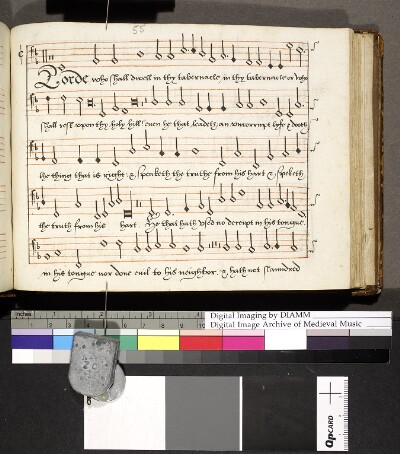 55
Lorde who shall dwell in thy tabernacle in thy tabernacle or who
shall rest vpon thy holy hill even he that leadeth an vncorrupt lyfe & doeth
the thing that is right & speaketh the truthe from his hart & speketh
the truth from his hart. He that hath vsed no deceipt in his tongue.
in his tongue nor done euil to his neighbor. & hath not slaundred
inches
Digital Imaging by DIAMM
Digital Image Archive of Medieval Music
QPCARD